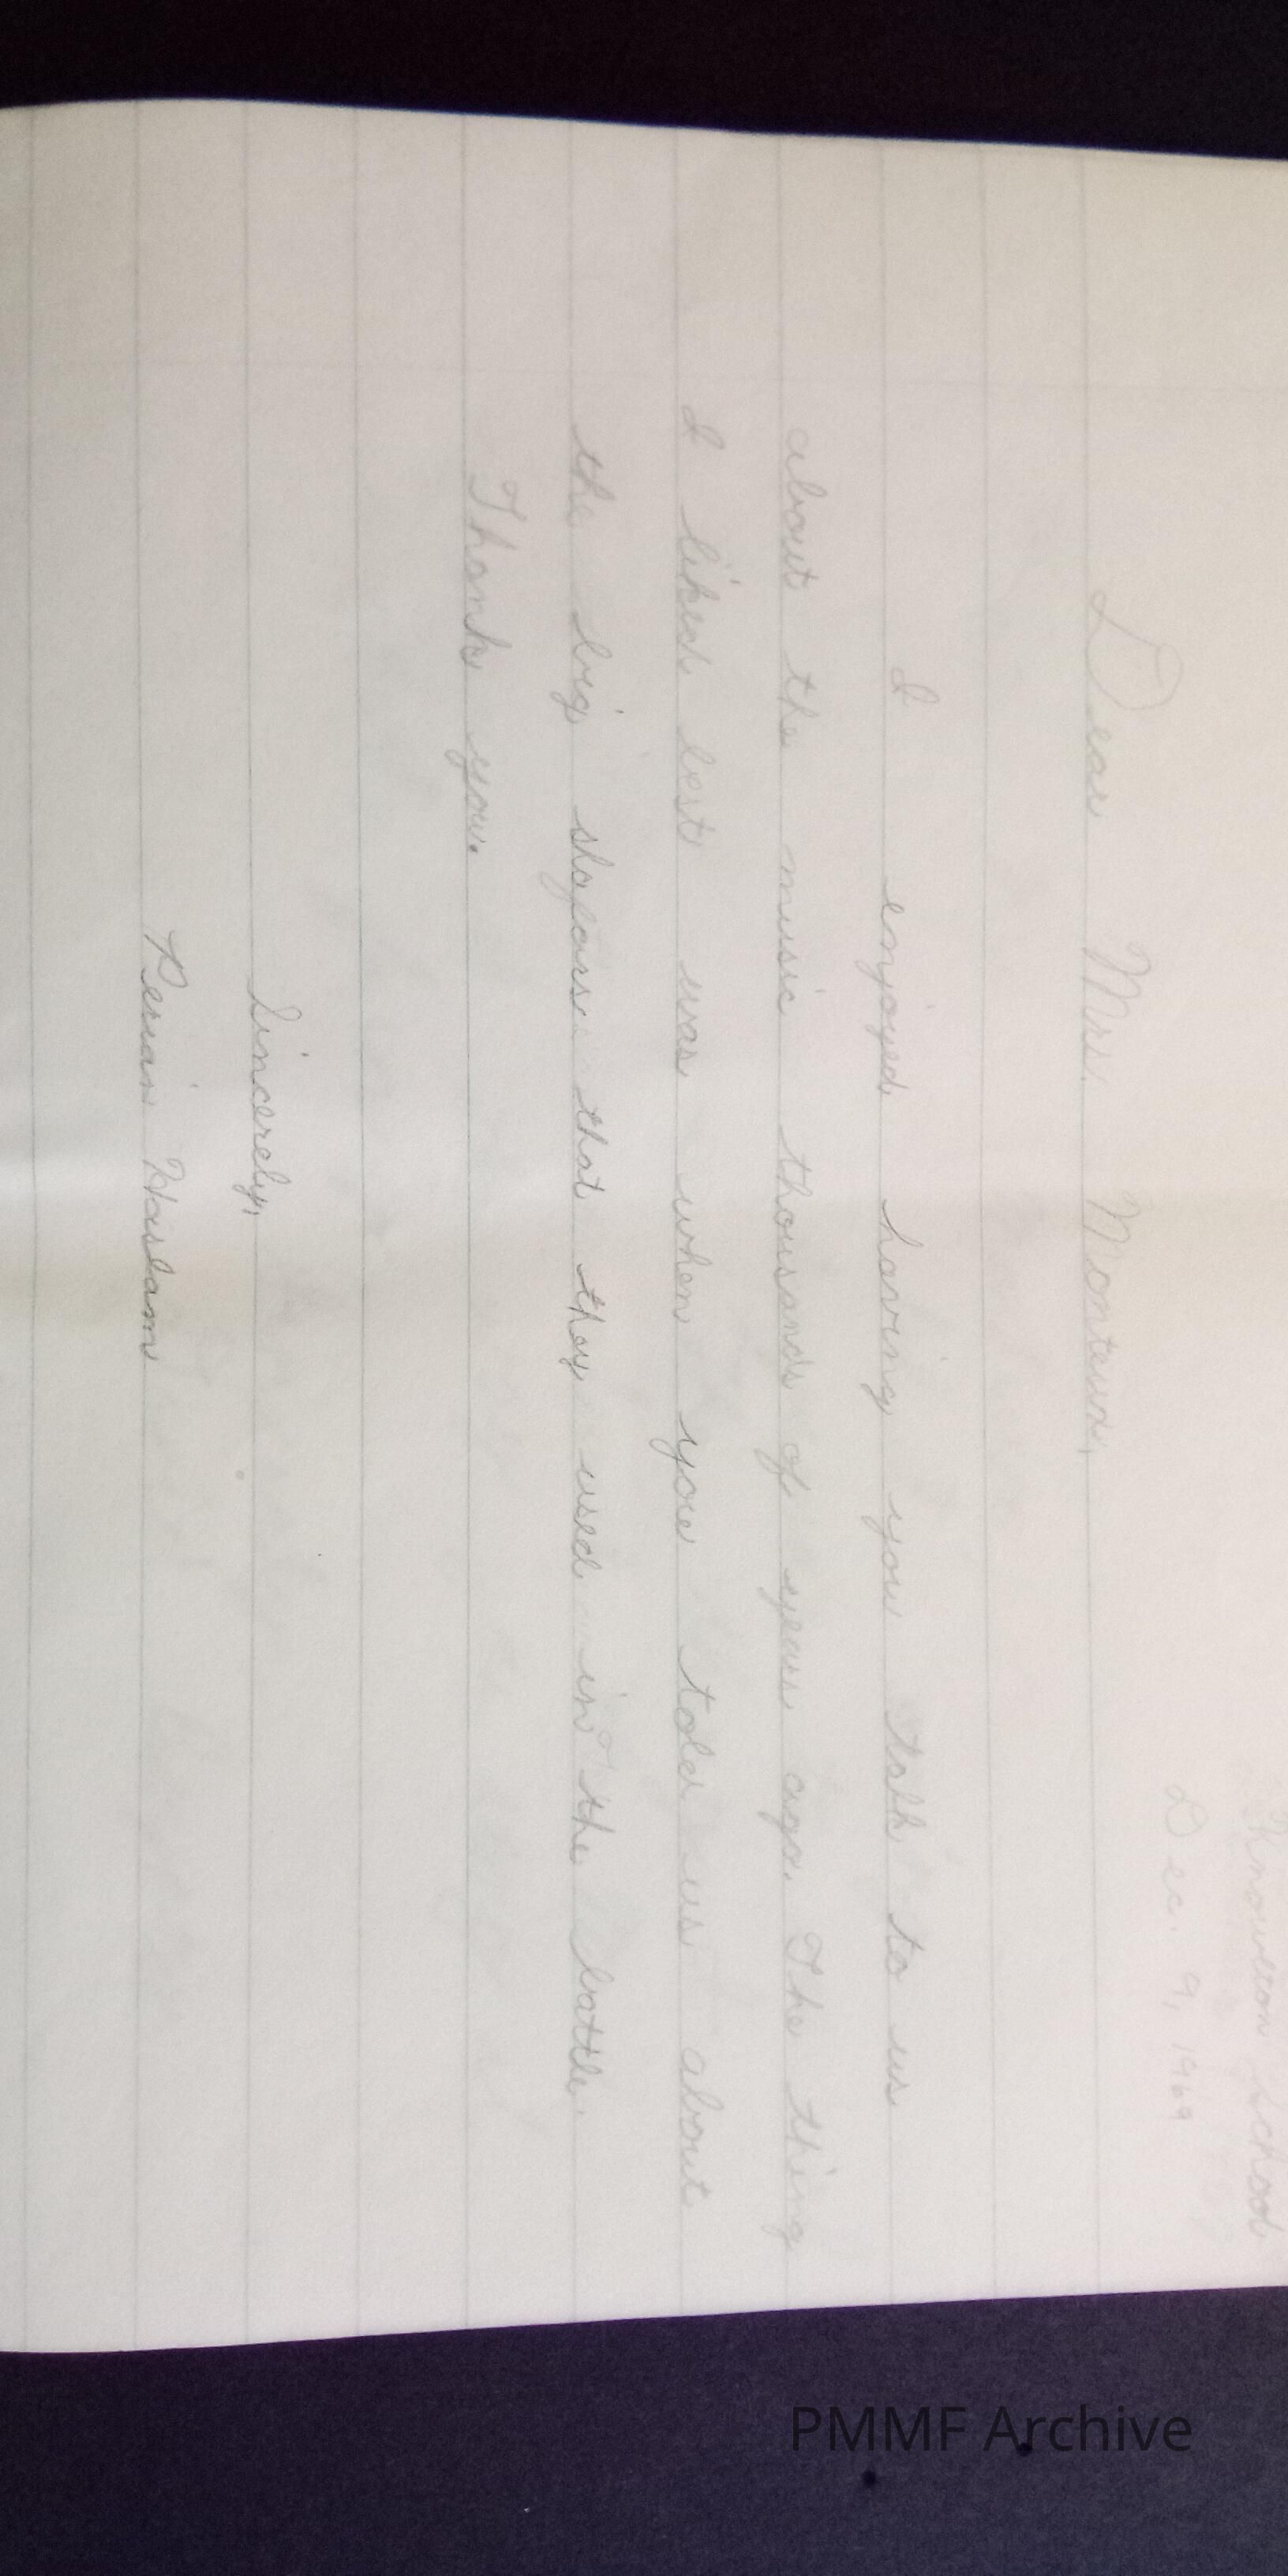 Knowlton School
Dec. 9, 1969
Dear Mrs. Monteux,
I enjoyed having you talk to us
about the music thousands of years ago. The thing
I liked best was when you told us about
the big shapars that they used in the battle.
Thank you.
Sincerely,
Haslam
PMMF Archive